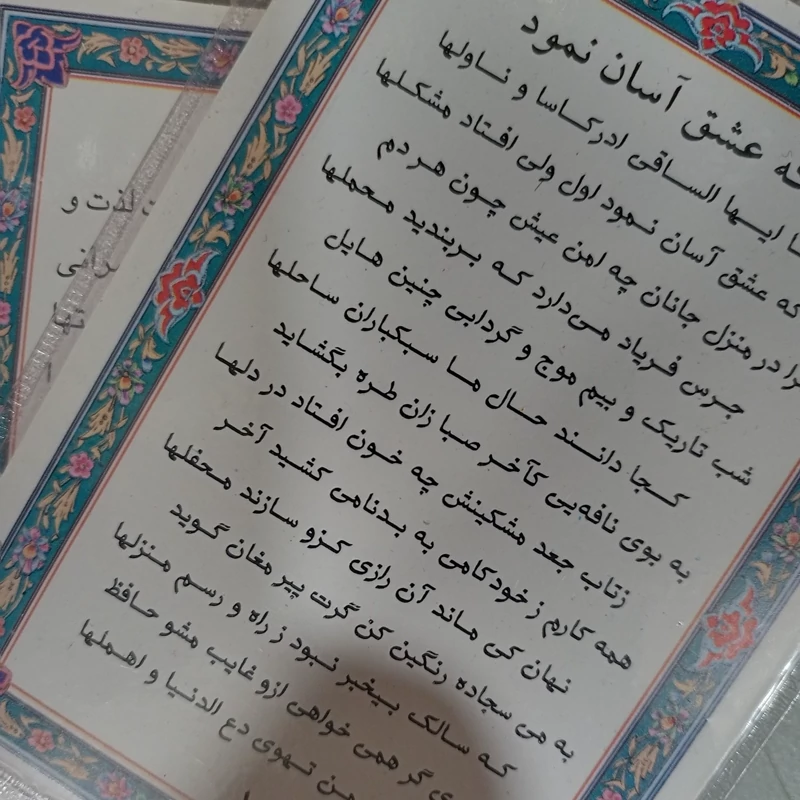 که عشق آسان نمود
ا ایها الساقی ادرکاسا و ناولها
که عشق آسان نمود اول ولی افتاد مشکلها
را در منزل جانان چه امن عیش چون هر دم
جرس فریاد می‌دارد که بربندید محملها
شب تاریک و بیم موج و گردابی چنین هایل
کجا دانند حال ما سبکباران ساحلها
به بوی نافه‌یی کآخر صبا زان طره بگشاید
زتاب جعد مشکینش چه خون افتاد در دلها
همه کارم ز خودکامی به بدنامی کشید آخر
نهان کی ماند آن رازی کزو سازند محفلها
به می سجاده رنگین کن گرت پیر مغان گوید
که سالک بیخبر نبود ز راه و رسم منزلها
ی گر همی خواهی ازو غایب مشو حافظ
من تهوی دع الدنیا و اهملها
لذت و